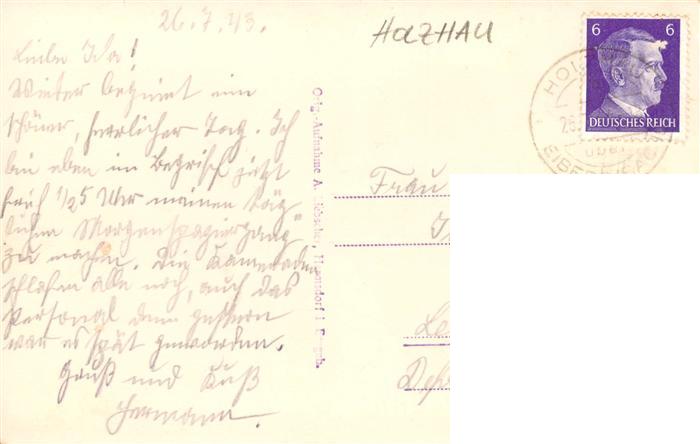 26.7.43.
HOLZHAU
Liebe Ida!
Wieder beginnt ein
schöner, herrlicher Tag. Ich
bin eben im Begriff jetzt
früh 1/25 Uhr meinen täg-
lichen Morgenspaziergang
zu machen. Die Kameraden
schlafen alle noch, auch das
Personal denn gestern
war es spät geworden.
Gruß und Kuß
Hermann.
Orig.-Aufnahme A.
6 6
DEUTSCHES REICH
HOL
26.
über
Frau
Le